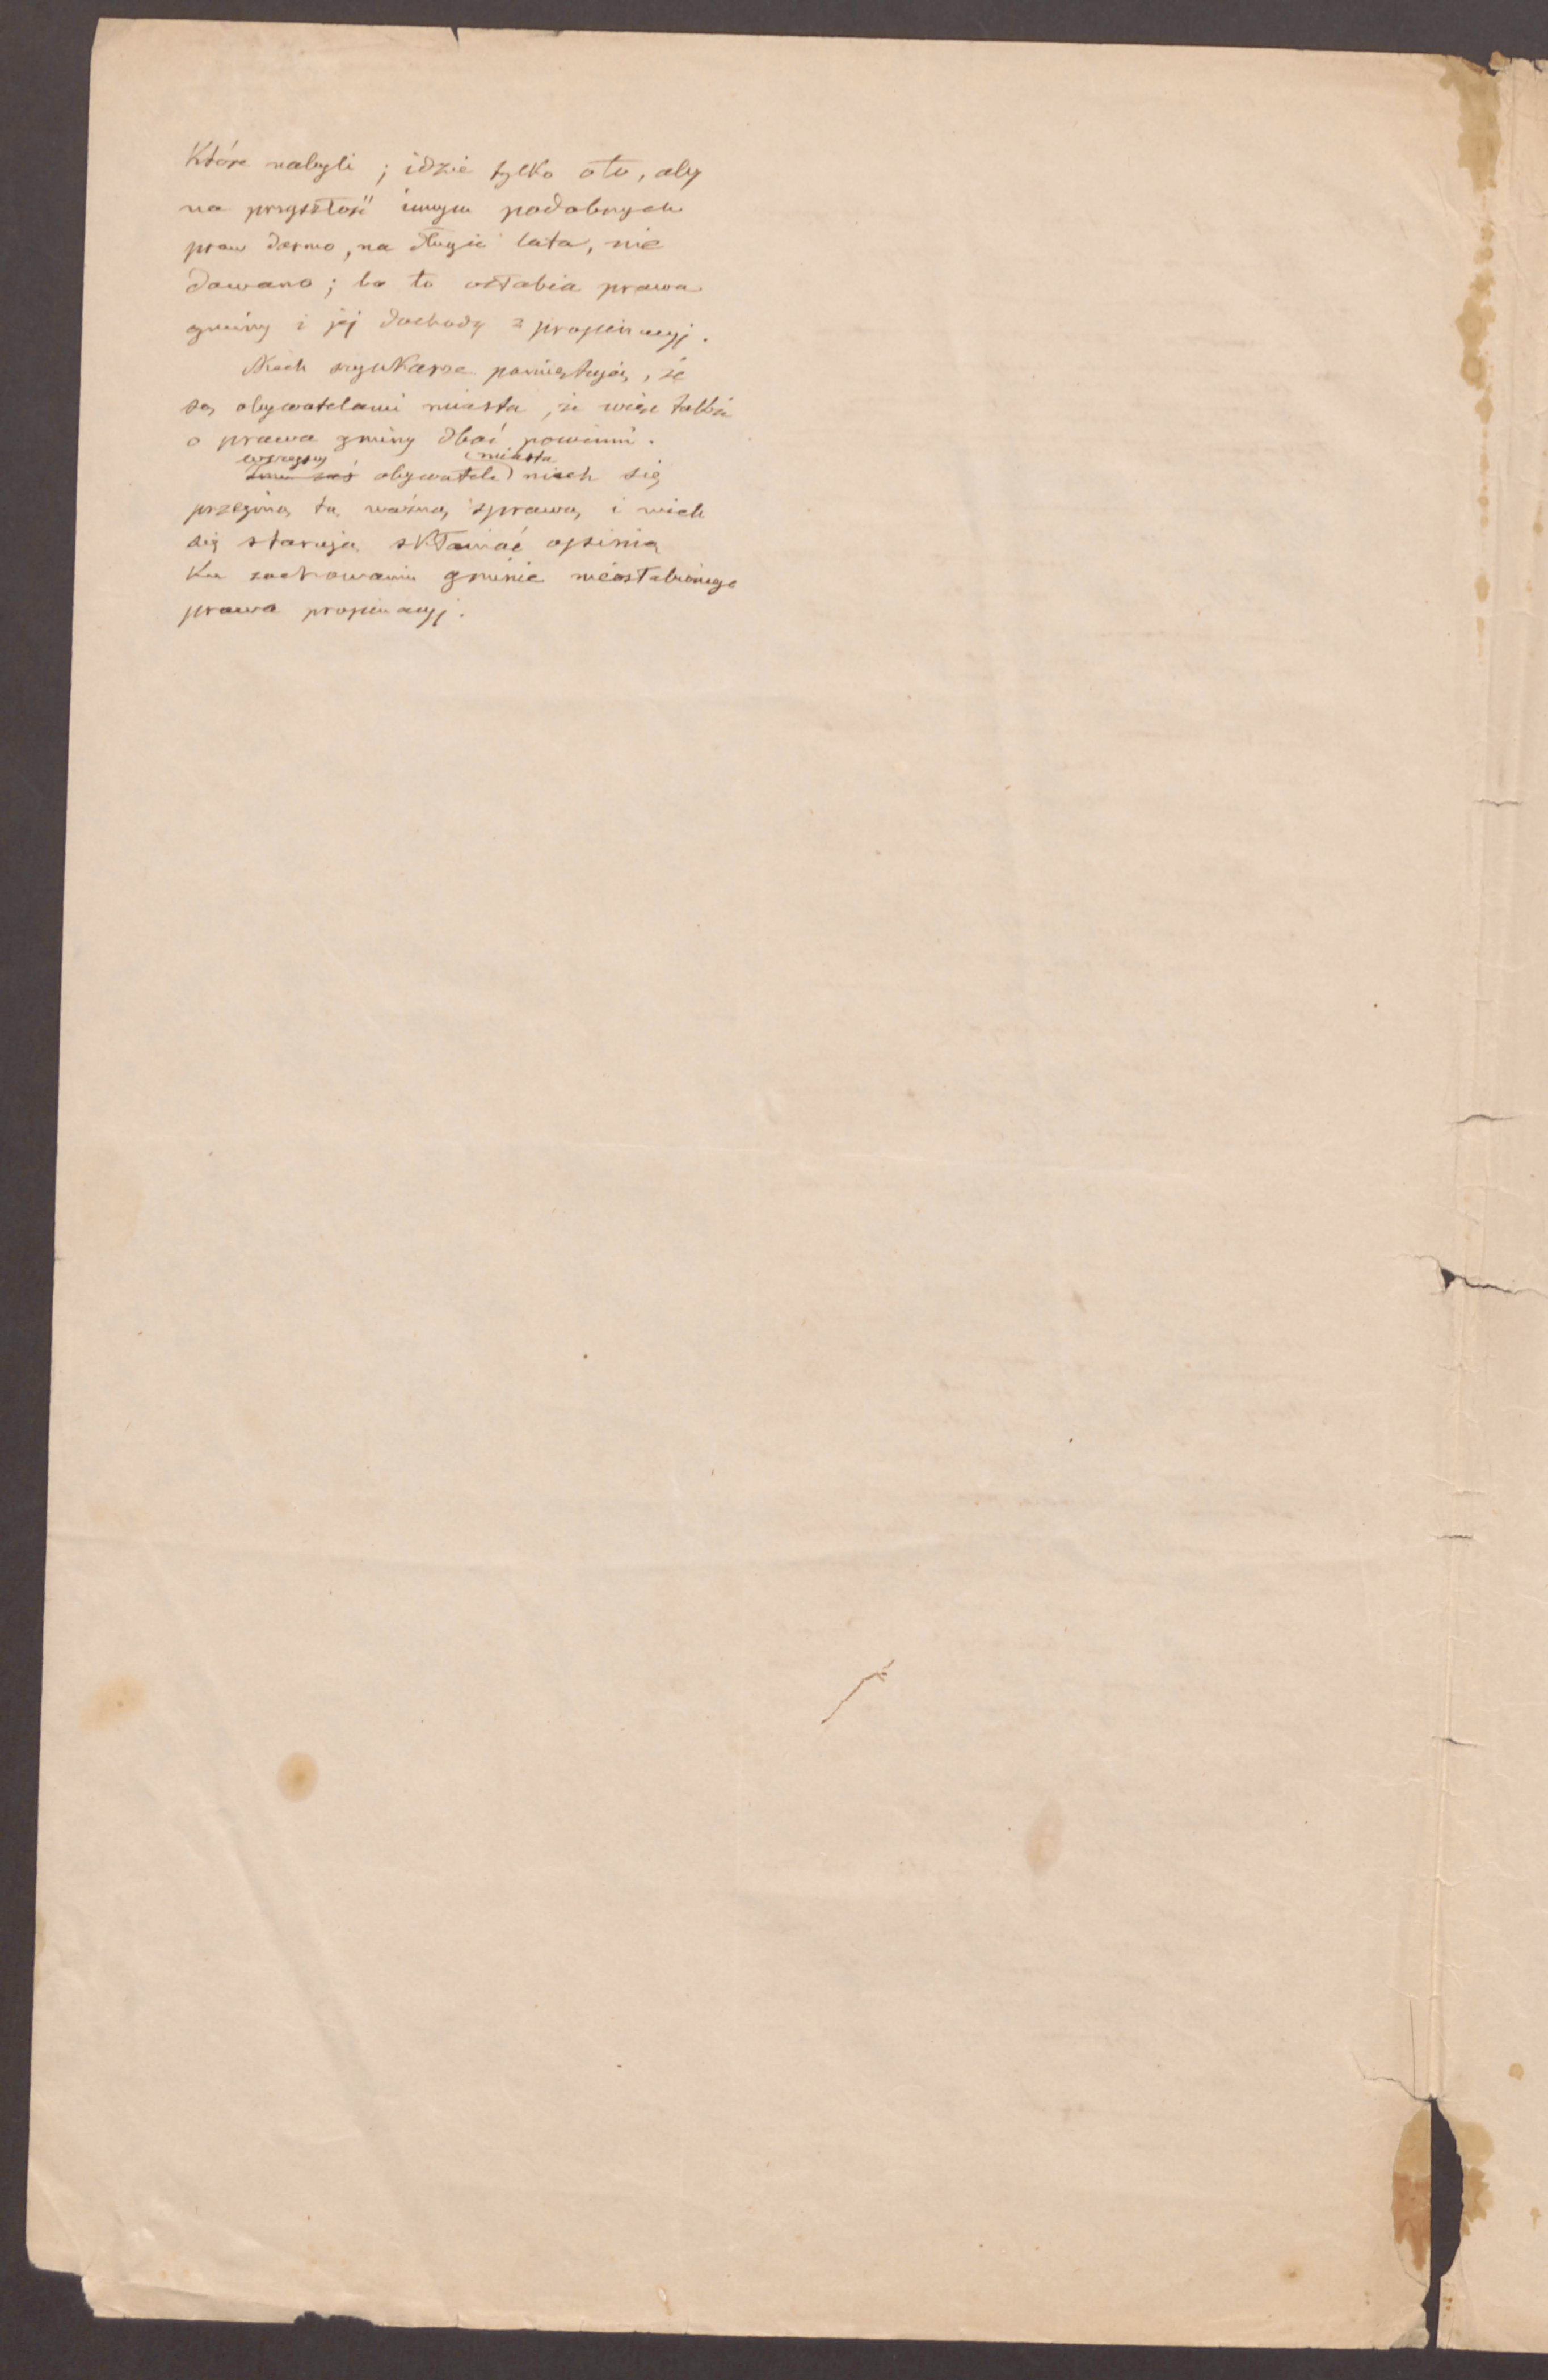 które nabyli ; idzie tylko oto, aby
na przyszłość innym podobnych
praw darmo, na długie lata, nie
dawano ; bo to osłabia prawa
gminy i jej dochody z propinacyj.
Niech szynkarze pamiętają, że
są obywatelami miasta, że więc także
o prawa gminy dbać powinni.
wszyscy miasta
Inni zaś obywatele niech się
przejmą tą ważną sprawą, i niech
się starają skłaniać opinią
ku zachowaniu gminie nieosłabionego
prawa propinacyj.